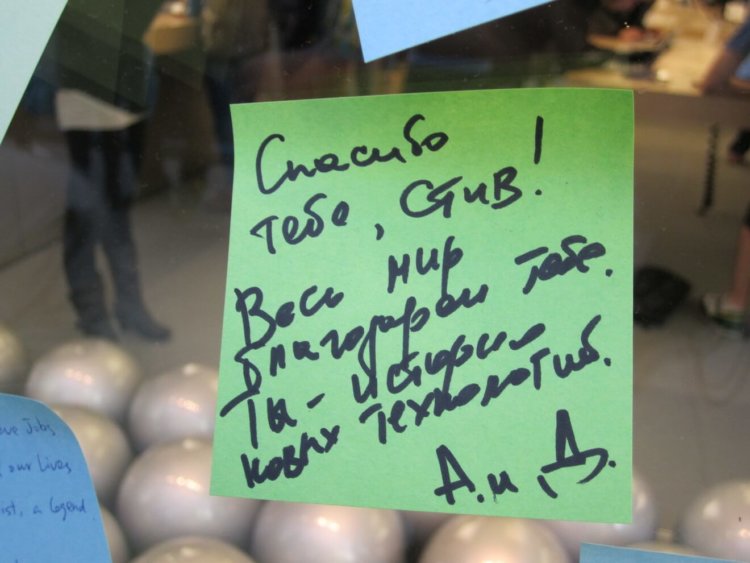 Спасибо
тебе, Стив!
Весь мир
благодарен тебе.
Ты - история
новых технологий.
А. и Д.
Jobs
our Lives
ist, a legend